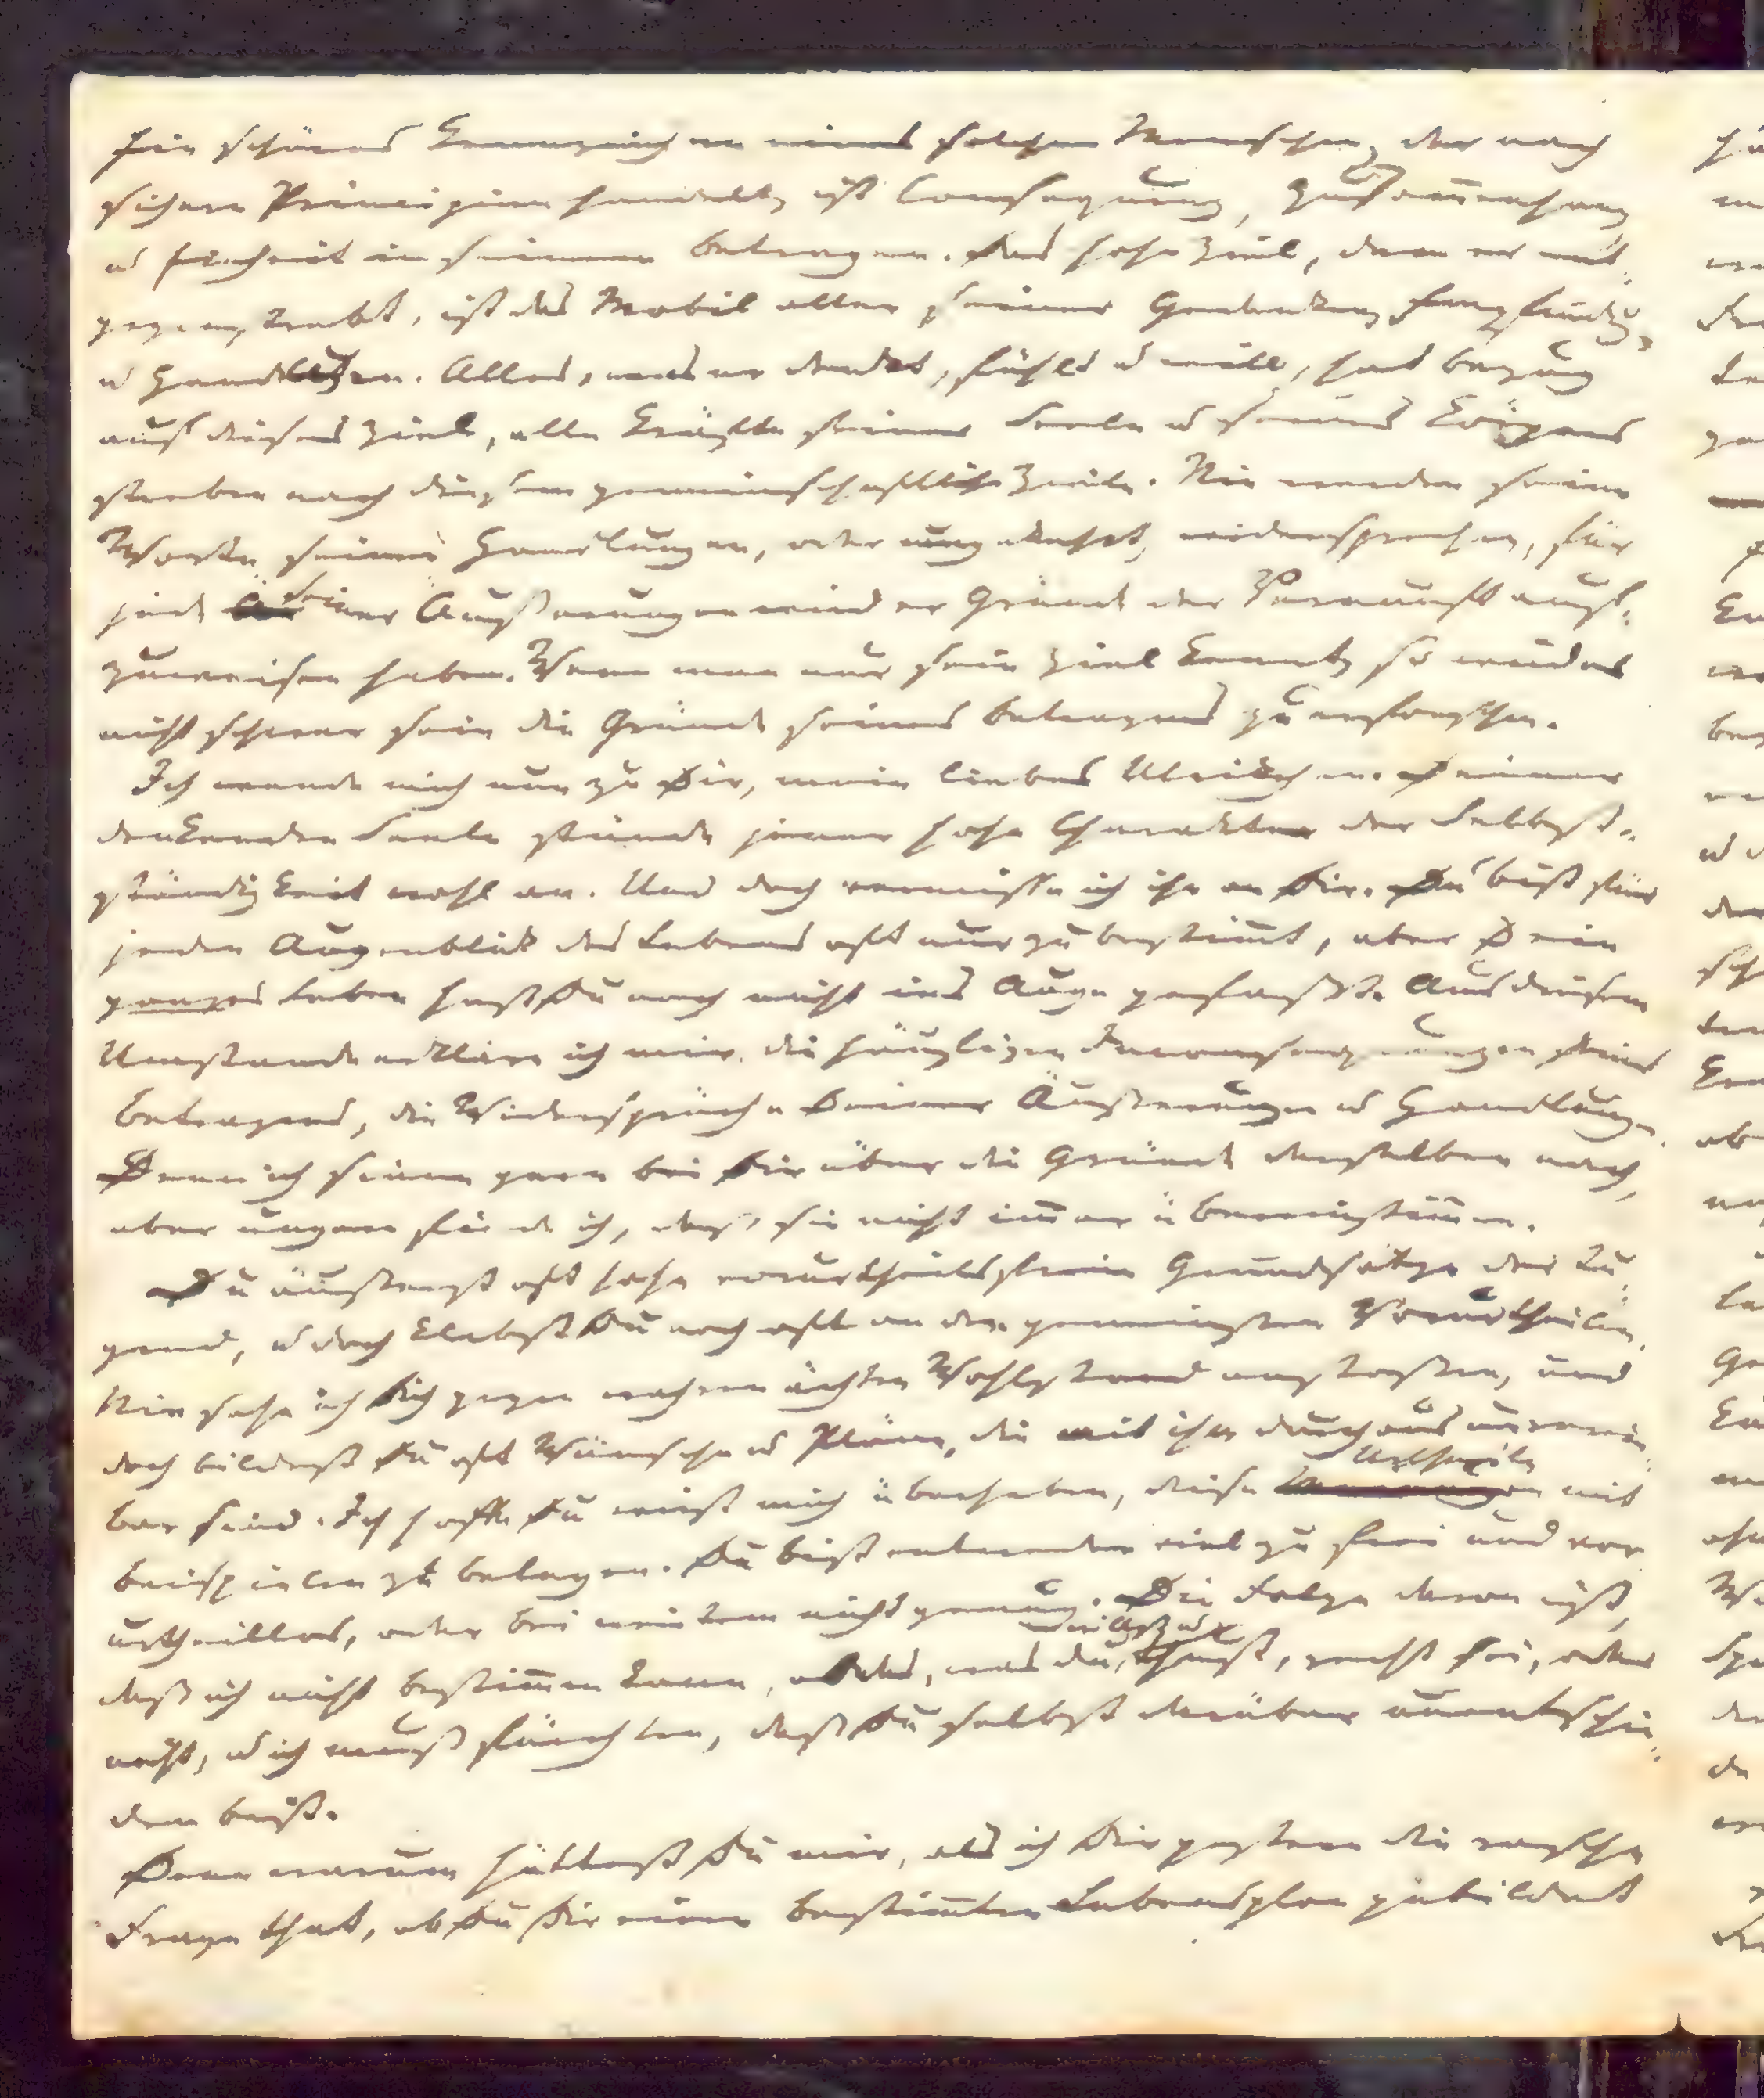 Ein schönes Kennzeichen eines solchen Menschen, der nach
sichern Principien handelt, ist Consequenz, Zusam̄enhang
u Einheit in seinem Betragen. Das hohe Ziel, dem er ent-
gegen strebt, ist das Mobil aller seiner Gedanken, Empfindug,
u Handlugen. Alles, was er denkt, fühlt u will, hat Bezug
auf dieses Ziel, alle Kräfte seiner Seele u seines Körpers
streben nach diesem gemeinschaftlichen Ziele. Nie werden seine
Worte seinen Handlungen, oder umgekehrt, widersprechen, für
jede seiner Äußerungen wird er Gründe der Vernunft auf-
zuweisen haben. Wenn man nur sein Ziel kennt, so wird es
nicht schwer sein die Gründe seines Betragens zu erforschen.
Ich wende mich nun zu Dir, mein liebes Ulrikchen. Deiner
denkenden Seele stünde jener hohe Charakter der Selbst-
ständigkeit wohl an. Und doch vermisse ich ihn an Dir. Du bist für
jeden Augenblick des Lebens oft nur zu bestim̄t, aber Dein
ganzes Leben hast Du noch nicht ins Auge gefaßt. Aus diesem
Umstande erkläre ich mir die häufigen Inconsequenzen Deines
Betragens, die Widersprüche Deiner Äußerungen u Handlungen.
Denn ich sinne gern bei Dir über die Gründe derselben nach,
aber ungern finde ich, daß sie nicht im̄er übereinstim̄en.
Du äußerst oft hohe vorurtheilsfreie Grundsätze der Tu-
gend, u doch klebst Du noch oft an den gemeinsten Vorurtheilen.
Nie sehe ich Dich gegen wahren ächten Wohlstand anstoßen, und
doch bildest Du oft Wünsche u Pläne, die mit ihm durchaus unverein-
bar sind. Ich hoffe Du wirst mich überheben, diese Urtheile mit
Beispielen zu belegen. Du bist entweder viel zu frei und vor
urtheillos, oder bei weitem nicht genug. Die Folge davon ist,
daß ich nicht bestim̄en kann, ob das, was du willst u thust, recht sei, oder
nicht, u ich muß fürchten, daß Du selbst darüber unentschie-
den bist.
Denn warum hättest Du mir, als ich Dir gestern die rasche
Frage that, ob Du Dir einen bestim̄ten Lebensplan gebildet